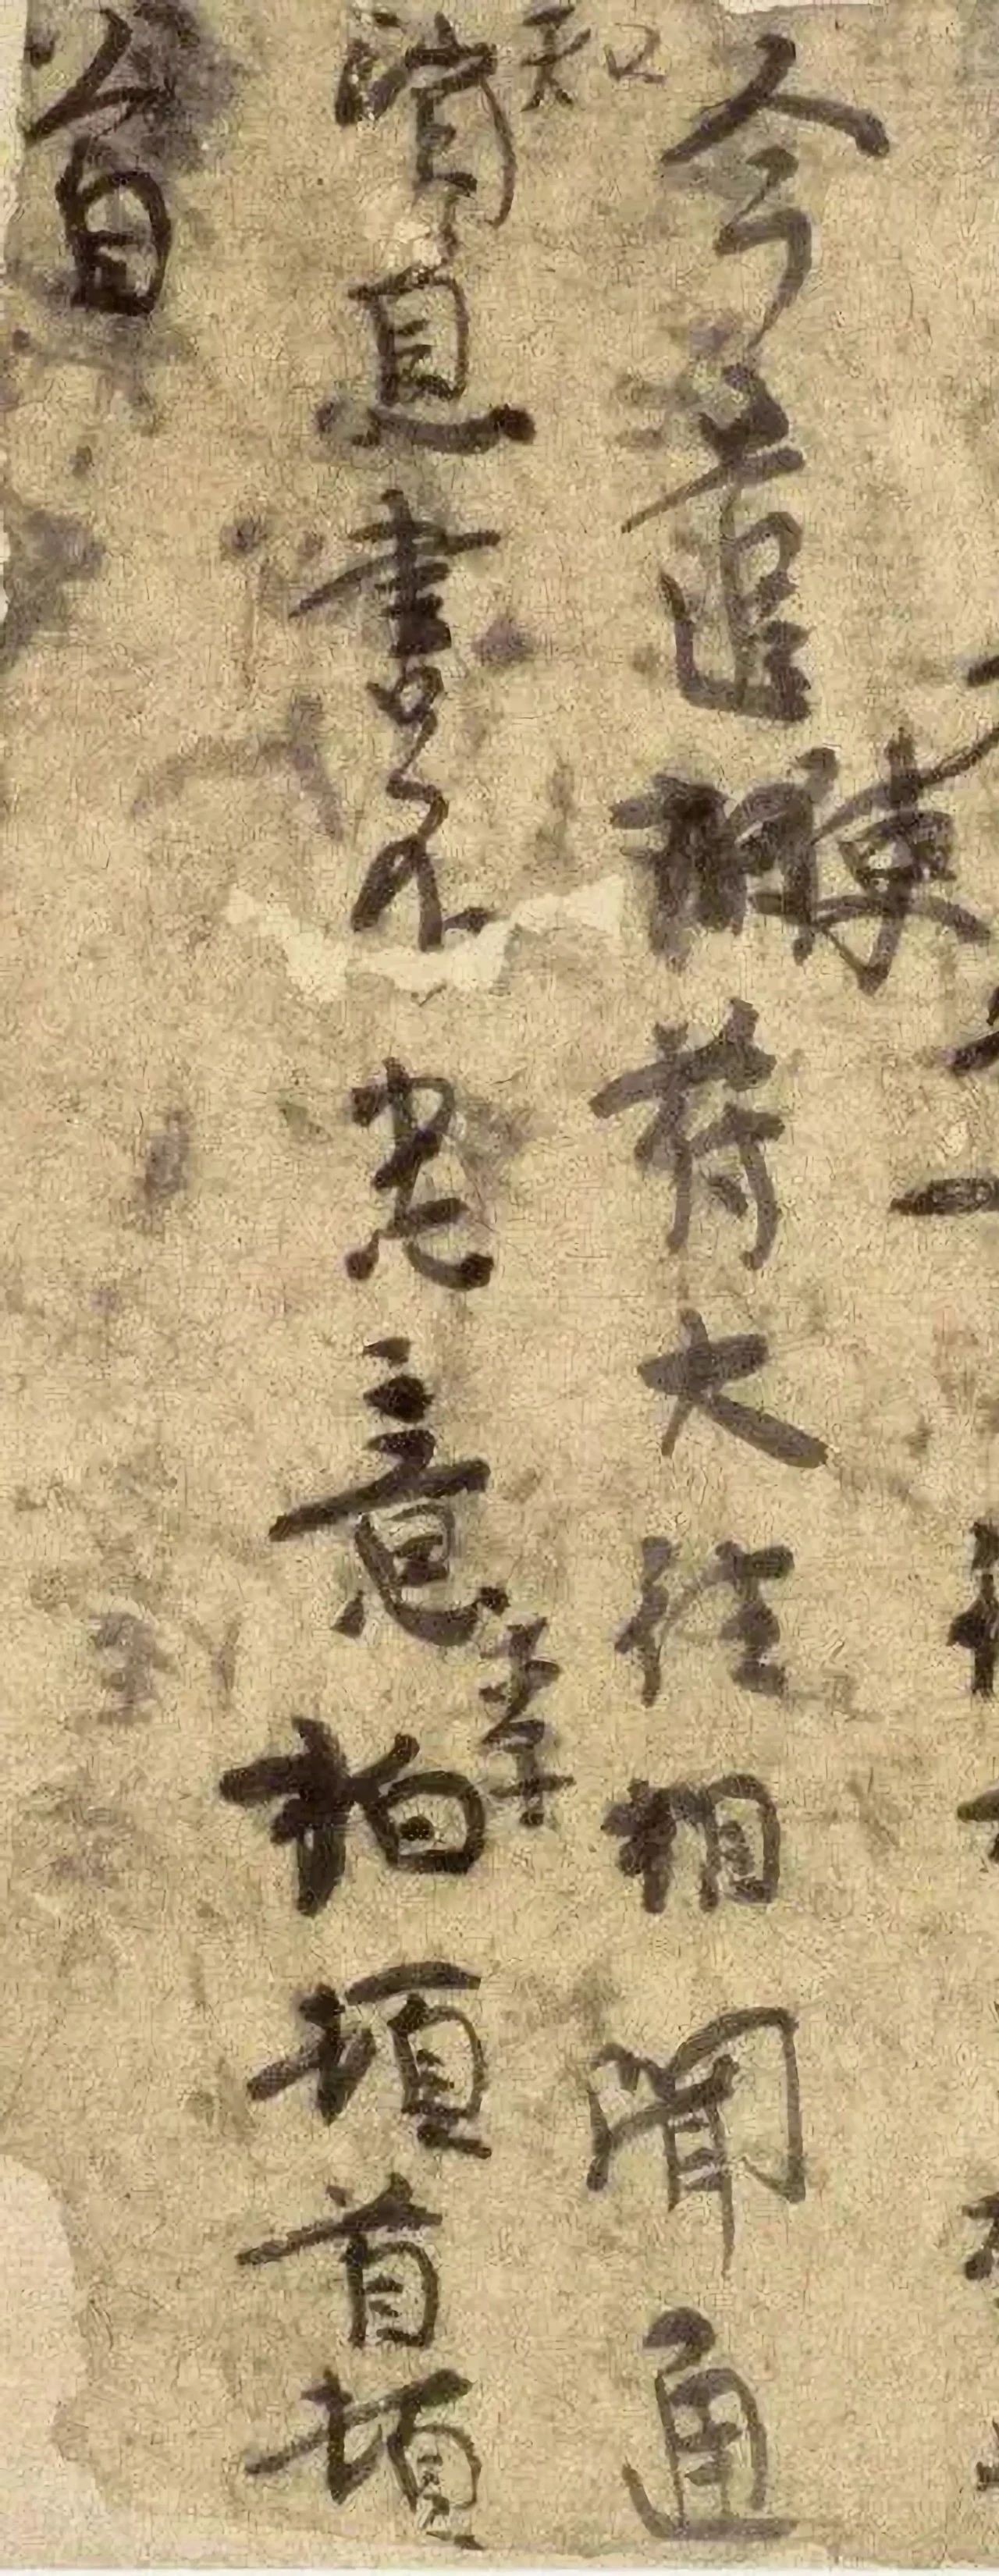 今遣使苻大往相聞通
知消息書不悉意李柏頓首頓
首